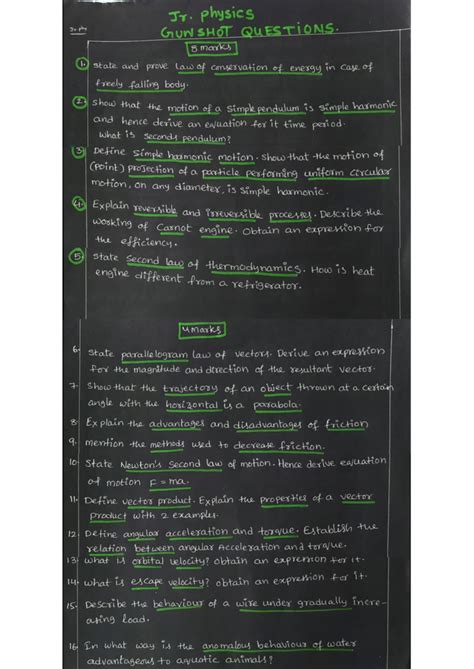 Jr. phy
Jr. physics
GUNSHOT QUESTIONS.
8 marks
1. State and prove law of conservation of energy in case of
freely falling body.
2. Show that the motion of a simple pendulum is simple harmonic
and hence derive an equation for it time period.
What is seconds pendulum?
3. Define simple harmonic motion. Show that the motion of
(point) projection of a particle performing uniform circular
motion, on any diameter, is simple harmonic.
4. Explain reversible and irreversible processes. Describe the
working of Carnot engine. Obtain an expression for
the efficiency.
5. State second law of thermodynamics. How is heat
engine different from a refrigerator.
4 Marks
6. State parallelogram law of vectors. Derive an expression
for the magnitude and direction of the resultant vector.
7. Show that the trajectory of an object thrown at a certain
angle with the horizontal is a parabola.
8. Explain the advantages and disadvantages of friction
9. mention the methods used to decrease friction.
10. State Newton's second law of motion. Hence derive equation
of motion F = ma.
11. Define vector product. Explain the properties of a vector
product with 2 examples.
12. Define angular acceleration and torque. Establish the
relation between angular Acceleration and torque.
13. What is orbital velocity? obtain an expression for it.
14. What is escape velocity? obtain an expression for it.
15. Describe the behaviour of a wire under gradually incre-
ating load.
16. In what way is the anomalous behaviour of water
advantageous to aquatic animals?